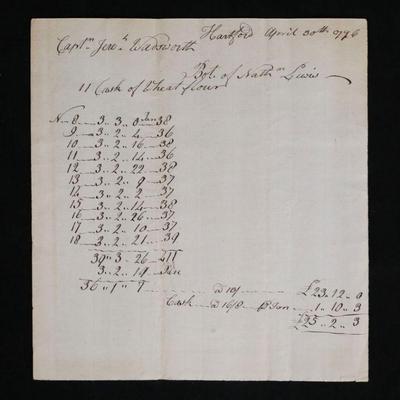 Hartford April 30th 1776
Captn Jereh Wadsworth
Bot of Nathn Lewis
11 Cask of Wheat flour
Tare
No 8 3 .. 3 .. 0 38
9 3 .. 2 .. 4 36
10 3 .. 2 .. 16 38
11 3 .. 2 .. 14 36
12 3 .. 2 .. 22 38
13 3 .. 2 .. 9 37
14 3 .. 2 .. 2 37
15 3 .. 2 .. 14 38
16 3 .. 2 .. 26 37
17 3 .. 2 .. 10 37
18 3 .. 2 .. 21 39
39 .. 3 .. 26 411
3 .. 2 .. 19 Tare
36 .. 1 .. 7 a £23 .. 12 .. 0
Cask a 1 .. 10 .. 3
£25 .. 2 .. 3